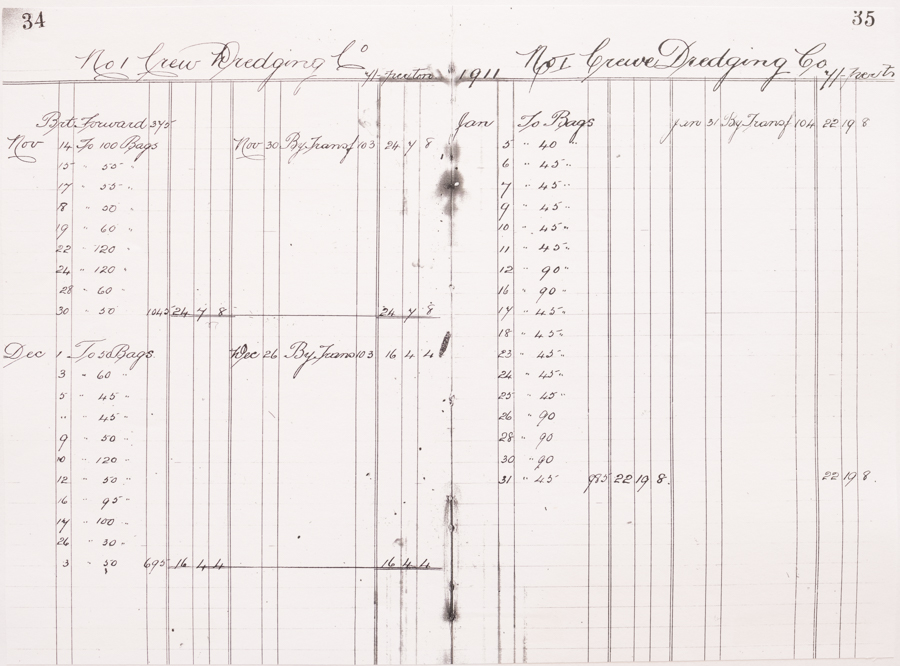 34
No 1 Crew Dredging Co
Brt Forward 375
Nov 14 To 100 Bags Nov 30 By Transf 103 24 7 8
15 " 55 "
17 " 55 "
18 " 50 "
19 " 60 "
22 " 120 "
24 " 120 "
28 " 60 "
30 " 50 1045 24 7 8 24 7 8
Dec 1 To 50 Bags Dec 26 By Trans 103 16 4 4
3 " 60 "
5 " 45 "
" " 45 "
9 " 50 "
10 " 120 "
12 " 50 "
16 " 95 "
17 " 100 "
26 " 30 "
3 " 50 695 16 4 4 16 4 4
35
1911 No 1 Crewe Dredging Co
Jan To Bags Jan 31 By Transf 104 22 19 8
5 " 40 "
6 " 45 "
7 " 45 "
9 " 45 "
10 " 45 "
11 " 45 "
12 " 90 "
16 " 90 "
17 " 45 "
18 " 45 "
23 " 45 "
24 " 45 "
25 " 45 "
26 " 90
28 " 90
30 " 90
31 " 45 985 22 19 8. 22 19 8.